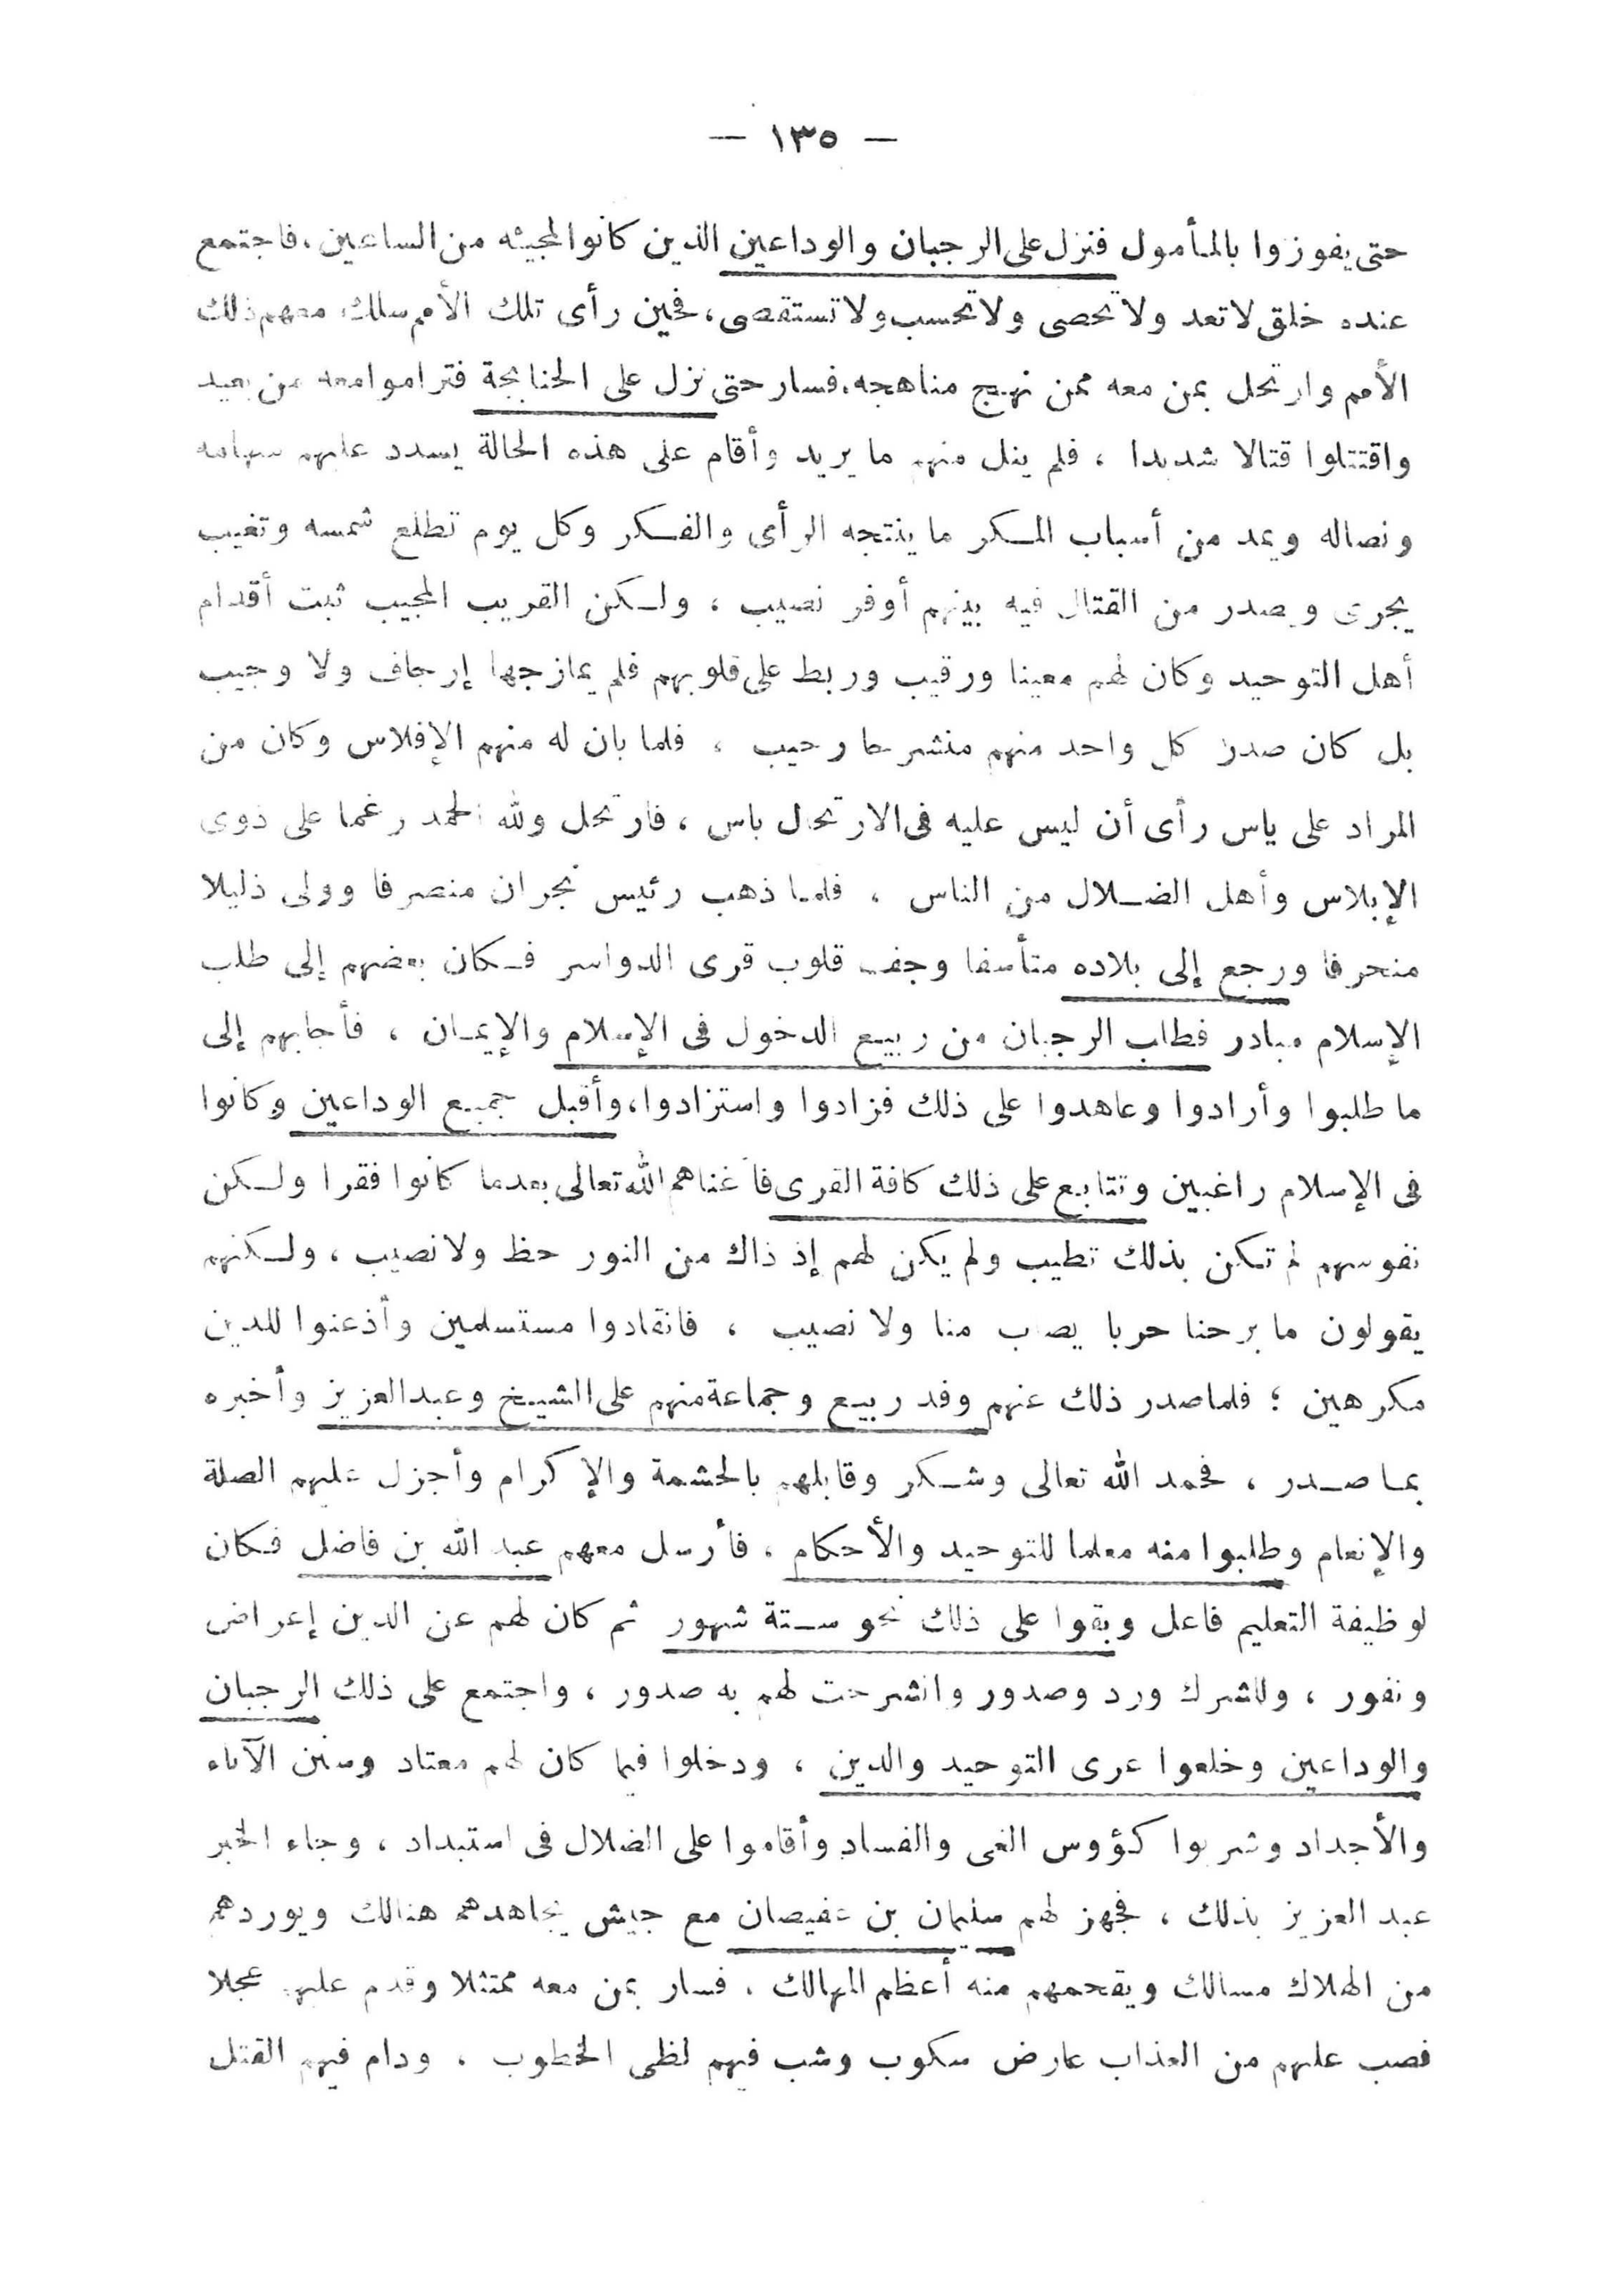 — ١٣٥ —
حتى يفوزوا بالمأمول فنزل على الرجبان والوداعين الذين كانوا لمجيئه من الساعين، فاجتمع
عنده خلق لا تعد ولا تحصى ولا تحسب ولا تستقصى، فحين رأى تلك الأمم سلك معهم ذلك
الأمم وارتحل بمن معه ممن نهج مناهجه، فسار حتى نزل على الحنابجة فتراموا معه من بعيد
واقتتلوا قتالا شديدا ، فلم ينل منهم ما يريد وأقام على هذه الحالة يسدد عليهم سهامه
ونصاله ويمد من أسباب المكر ما ينتجه الرأى والفكر وكل يوم تطلع شمسه وتغيب
يجرى ويصدر من القتال فيه بينهم أوفر نصيب ، ولكن القريب المجيب ثبت أقدام
أهل التوحيد وكان لهم معينا ورقيب وربط على قلوبهم فلم يمازجها إرجاف ولا وجيب
بل كان صدر كل واحد منهم منشرحا رحيب ، فلما بان له منهم الإفلاس وكان من
المراد على ياس رأى أن ليس عليه فى الارتحال باس ، فارتحل ولله الحمد رغما على ذوى
الإبلاس وأهل الضلال من الناس ، فلما ذهب رئيس نجران منصرفا وولى ذليلا
منحرفا ورجع إلى بلاده متأسفا وجف قلوب قرى الدواسر فكان بعضهم إلى طلب
الإسلام مبادر فطلب الرجبان من ربيع الدخول فى الإسلام والإيمان ، فأجابهم إلى
ما طلبوا وأرادوا وعاهدوا على ذلك فزادوا واستزادوا، وأقبل جميع الوداعين وكانوا
فى الإسلام راغبين وتتابع على ذلك كافة القرى فأغناهم الله تعالى بعدما كانوا فقرا ولكن
نفوسهم لم تكن بذلك تطيب ولم يكن لهم إذ ذاك من النور حظ ولا نصيب ، ولكنهم
يقولون ما برحنا حربا يصاب منا ولا نصيب ، فانقادوا مستسلمين وأذعنوا للدين
مكرهين ؛ فلما صدر ذلك عنهم وفد ربيع وجماعة منهم على الشيخ وعبد العزيز وأخبره
بما صدر ، فحمد الله تعالى وشكر وقابلهم بالحشمة والإكرام وأجزل عليهم الصلة
والإنعام وطلبوا منه معلما للتوحيد والأحكام ، فأرسل معهم عبد الله بن فاضل فكان
لوظيفة التعليم فاعل وبقوا على ذلك نحو ستة شهور ثم كان لهم عن الدين إعراض
ونفور ، وللشرك ورد وصدور وانشرحت لهم به صدور ، واجتمع على ذلك الرجبان
والوداعين وخلعوا عرى التوحيد والدين ، ودخلوا فيما كان لهم معتاد وسنن الآباء
والأجداد وشربوا كؤوس الغى والفساد وأقاموا على الضلال فى استبداد ، وجاء الخبر
عبد العزيز بذلك ، فجهز لهم سليمان بن عفيصان مع جيش يجاهدهم هنالك ويوردهم
من الهلاك مسالك ويقحمهم منه أعظم المهالك ، فسار بمن معه ممتثلا وقدم عليهم عجلا
فصب عليهم من العذاب عارض سكوب وشب فيهم لظى الخطوب ، ودام فيهم القتل